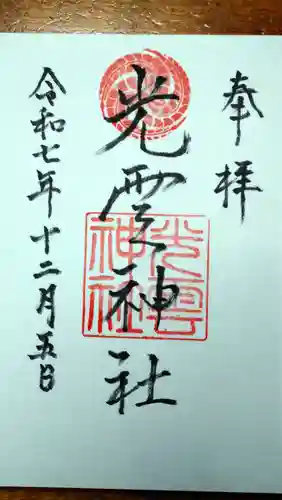 奉拝
光雲神社
光雲神社
令和七年十二月五日